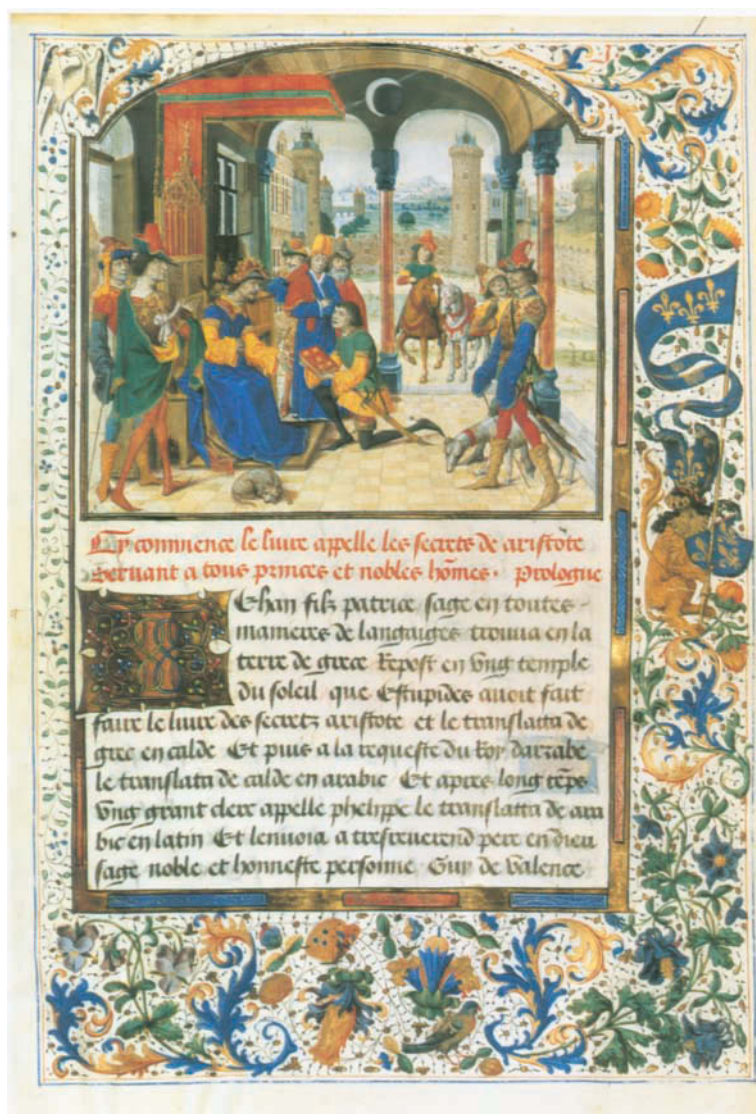 Cy commence le liure appelle les secrets de aristote
seruant a tous princes et nobles hōmes. Prologue
Ehan filz patrice sage en toutes
manieres de langaiges trouua en la
terre de grece Repost en vng temple
du soleil que Estupides auoit fait
faire le liure des secretz aristote et le translatta de
grec en calde Et puis a la requeste du Roy darrabe
le translata de calde en arabic Et apres long tēps
vng grant clerc appelle phelippe le translatta de ara
bic en latin Et lenuoia a tresreuerend pere en dieu
sage noble et honneste personne Guy de Valence